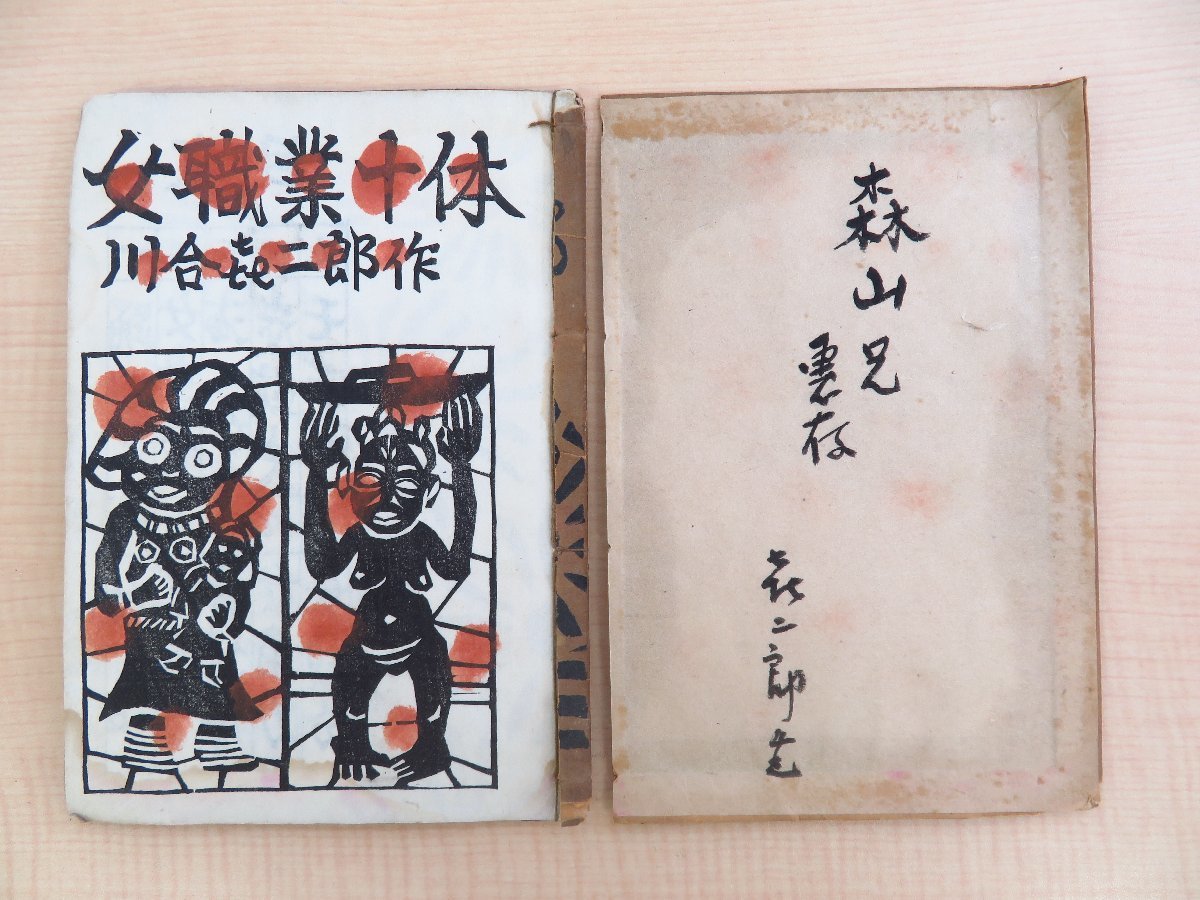 女職業十体
川合㐂二郎作
森山兄
恵存
㐂二郎生